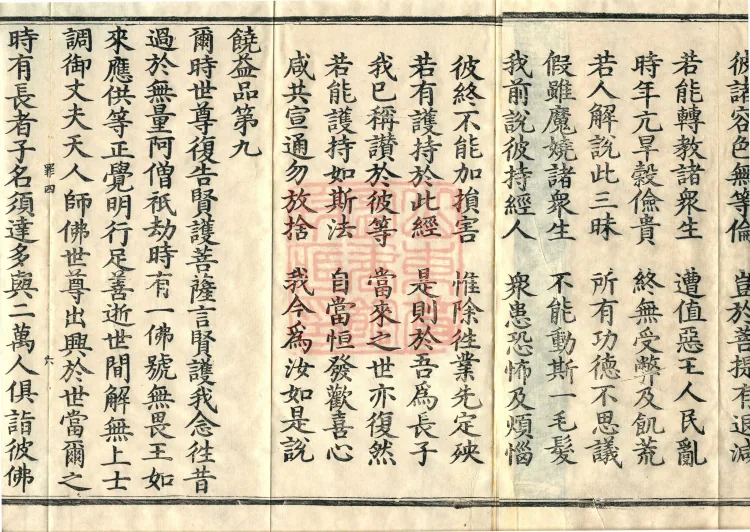 彼諸容色無等倫　豈於菩提有退減
若能轉教諸衆生　遭值惡王人民亂
時年亢旱穀儉貴　終無受弊及飢荒
若人解說此三昧　所有功德不思議
假雖魔嬈諸衆生　不能動斯一毛髮
我前說彼持經人　衆患恐怖及煩惱
彼終不能加損害　惟除往業先定殃
若有護持於此經　是則於吾爲長子
我已稱讃於彼等　當來之世亦復然
若能護持如斯法　自當恒發歡喜心
咸共宣通勿放捨　我今爲汝如是說
饒益品第九
爾時世尊復告賢護菩薩言賢護我念往昔
過於無量阿僧祇劫時有一佛號無畏王如
來應供等正覺明行足善逝世間解無上士
罪四　六
調御丈夫天人師佛世尊出興於世當爾之
時有長者子名須達多與二萬人俱詣彼佛